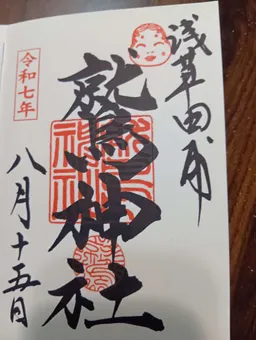 浅草田甫
鷲神社
令和七年
八月十五日